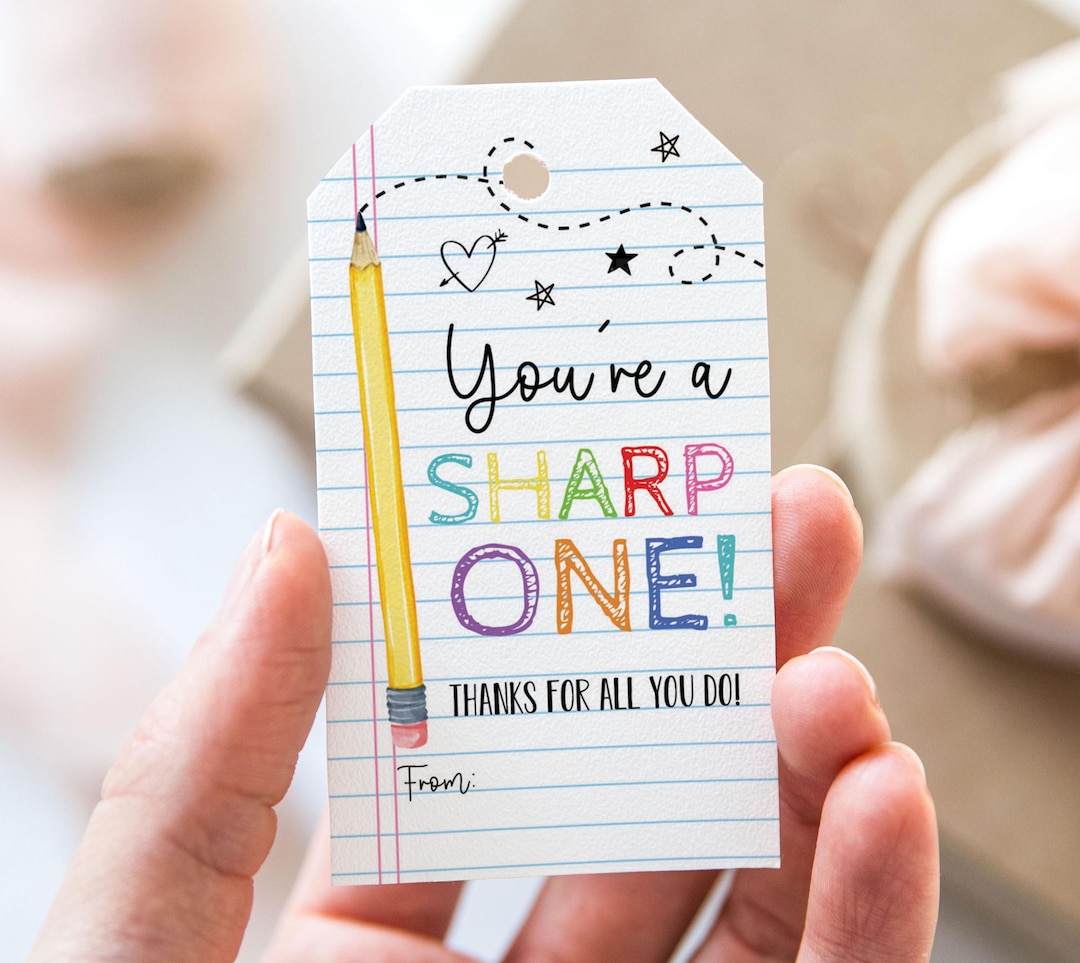 You're a
SHARP
ONE!
THANKS FOR ALL YOU DO!
From: